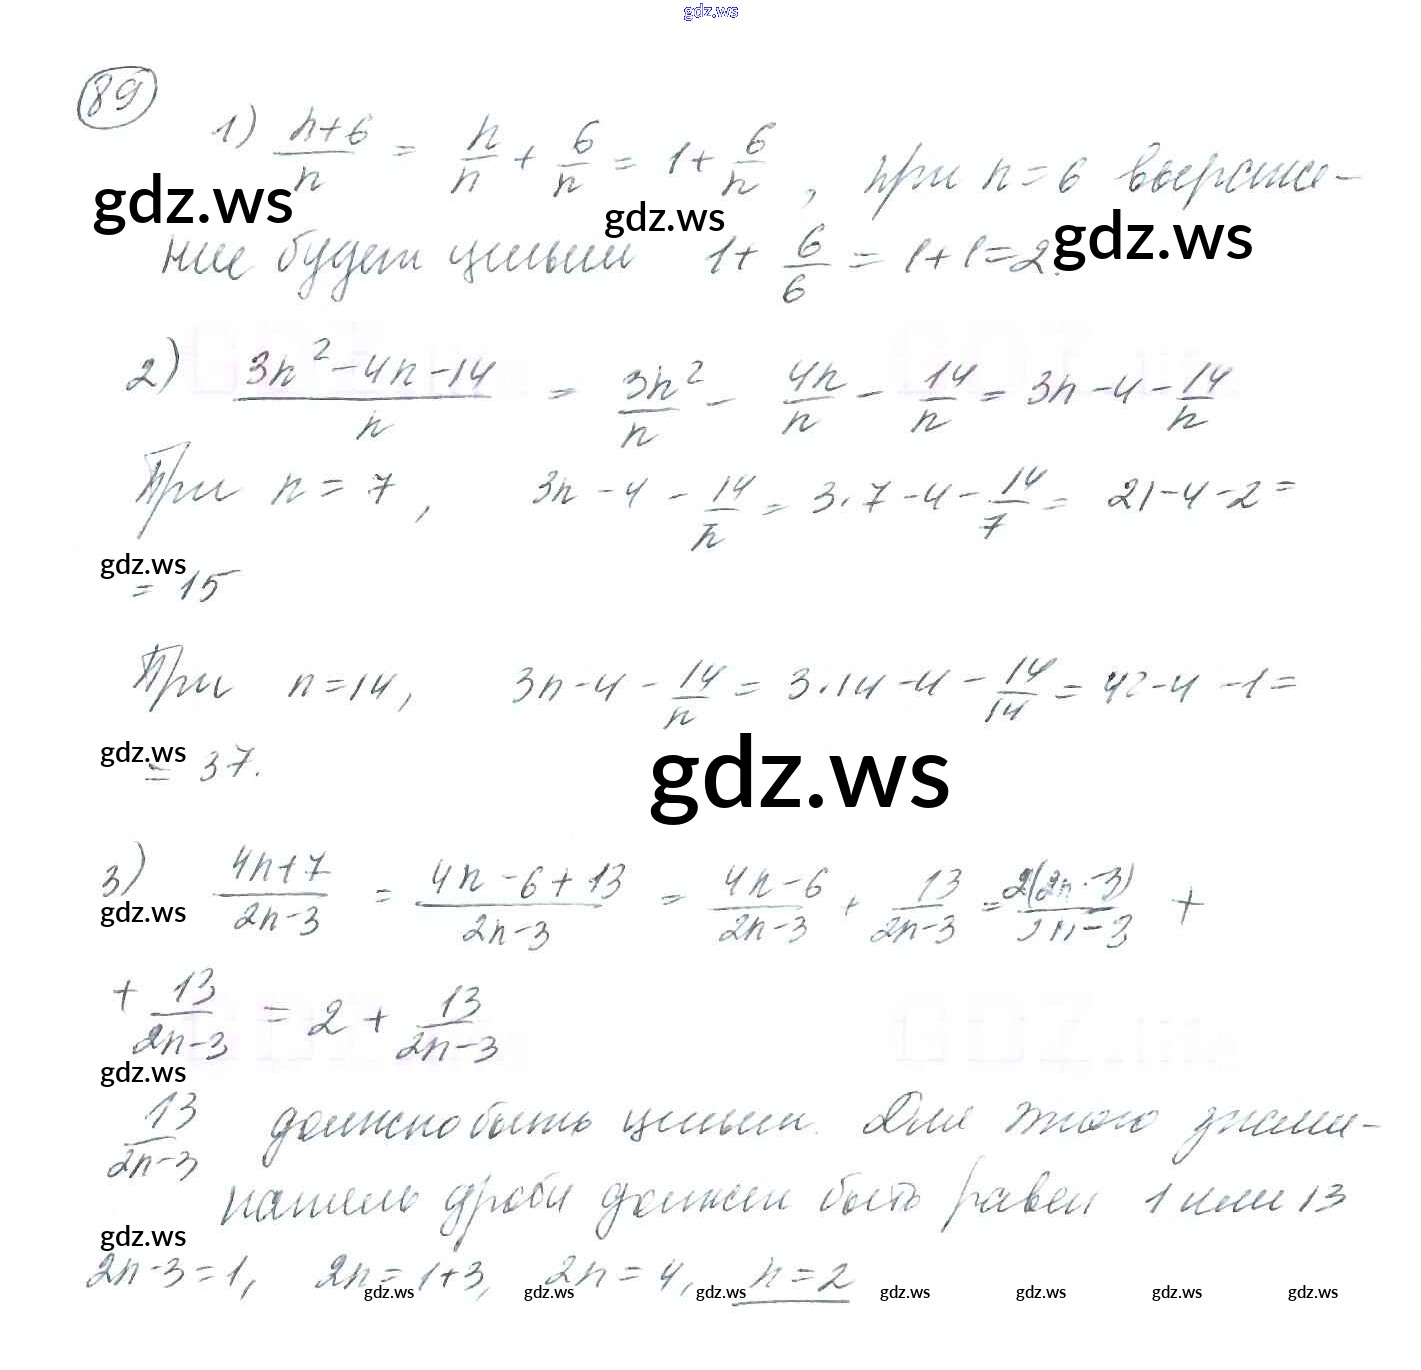 gdz.ws
89
1) (n+6)/n = n/n + 6/n = 1 + 6/n , при n = 6 выраже-
gdz.ws gdz.ws
ние будет целым 1 + 6/6 = 1 + 1 = 2. gdz.ws
2) (3n² - 4n - 14)/n = 3n²/n - 4n/n - 14/n = 3n - 4 - 14/n
При n = 7 , 3n - 4 - 14/n = 3·7 - 4 - 14/7 = 21 - 4 - 2 =
gdz.ws
= 15
При n = 14, 3n - 4 - 14/n = 3·14 - 4 - 14/14 = 42 - 4 - 1 =
gdz.ws
= 37.
gdz.ws
3) (4n+7)/(2n-3) = (4n-6+13)/(2n-3) = (4n-6)/(2n-3) + 13/(2n-3) = 2(2n-3)/(2n-3) +
gdz.ws
+ 13/(2n-3) = 2 + 13/(2n-3)
gdz.ws
13/(2n-3) должно быть целым. Для этого знаме-
натель дроби должен быть равен 1 или 13
gdz.ws
2n-3 = 1, 2n = 1+3, 2n = 4, n = 2
gdz.ws gdz.ws gdz.ws gdz.ws gdz.ws gdz.ws gdz.ws